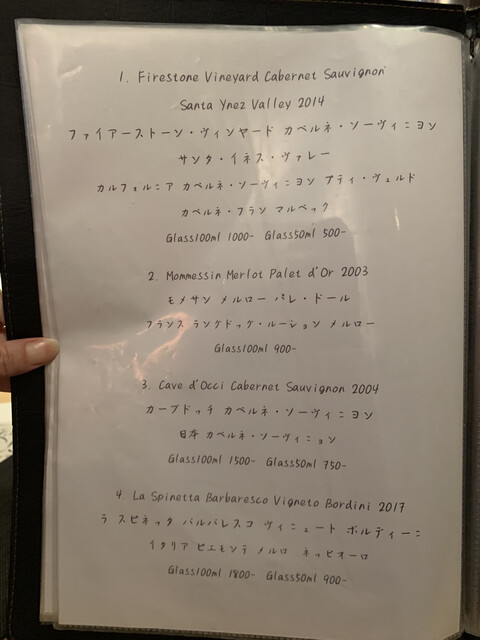 1. Firestone Vineyard Cabernet Sauvignon
Santa Ynez Valley 2014
ファイアーストーン・ヴィンヤード カベルネ・ソーヴィニヨン
サンタ・イネス・ヴァレー
カルフォルニア カベルネ・ソーヴィニヨン プティ・ヴェルド
カベルネ・フラン マルベック
Glass100ml 1000- Glass50ml 500-
2. Mommessin Merlot Palet d'Or 2003
モメサン メルロー パレ・ドール
フランス ラングドック・ルーション メルロー
Glass100ml 900-
3. Cave d'Occi Cabernet Sauvignon 2004
カーブドッチ カベルネ・ソーヴィニヨン
日本 カベルネ・ソーヴィニョン
Glass100ml 1500- Glass50ml 750-
4. La Spinetta Barbaresco Vigneto Bordini 2017
ラ スピネッタ バルバレスコ ヴィニュート ボルディーニ
イタリア ピエモンテ メルロ ネッビオーロ
Glass100ml 1800- Glass50ml 900-